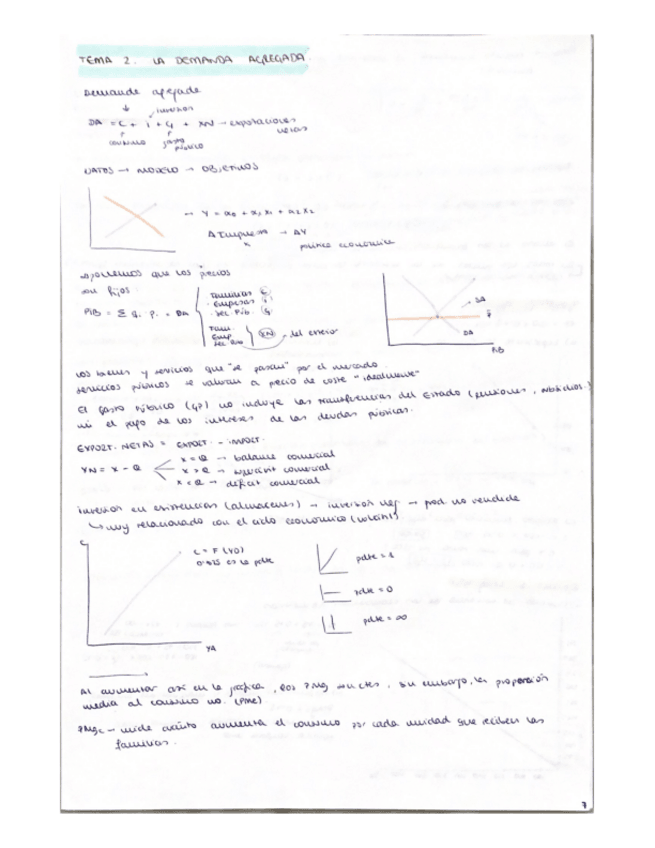 TEMA 2. LA DEMANDA AGREGADA.
Demanda agregada
inversion
DA = C + i + G + XN → exportaciones netas
consumo gasto público
DATOS → MODELO → OBJETIVOS
→ Y = α0 + α1 x1 + α2 x2
Δ Impuestos → ΔY
x1
política económica
suponemos que los precios
son fijos
PIB = Σ q. p. = DA
familias C
empresas i
Sec. Púb. G
Fam.
Emp
Sec
XN del exterior
OA
P
DA
PIB
Los bienes y servicios que "se pasan" por el mercado
servicios públicos se valoran a precio de coste "idealmente"
El gasto público (G) no incluye las transferencias del Estado (pensiones,
ni el pago de los intereses de las deudas públicas.
EXPORT. NETAS = EXPORT. - IMPORT.
XN = X - Q
X = Q → balance comercial
X > Q → superávit comercial
X < Q → déficit comercial
inversion en existencias (almacenes) → inversion neg → prod. no vendido
↳ muy relacionado con el ciclo economico (volátil)
C
C = F (YD)
es la pdte
YD
pdte = 1
pdte = 0
pdte = ∞
Al aumentar así en la gráfica, las PMg son ctes, sin embargo, la proporción
media al consumo no. (PMe)
PMgc → mide cuánto aumenta el consumo por cada unidad que reciben las
familias.
7